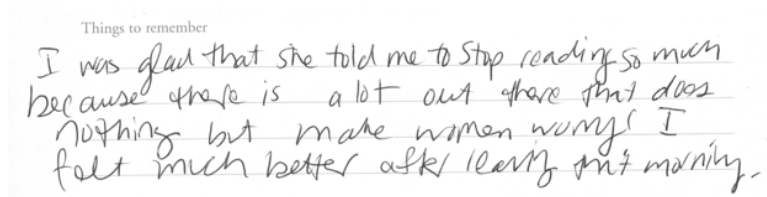 Things to remember
I was glad that she told me to stop reading so much
because there is a lot out there that does
nothing but make women worry! I
felt much better after leaving that morning.